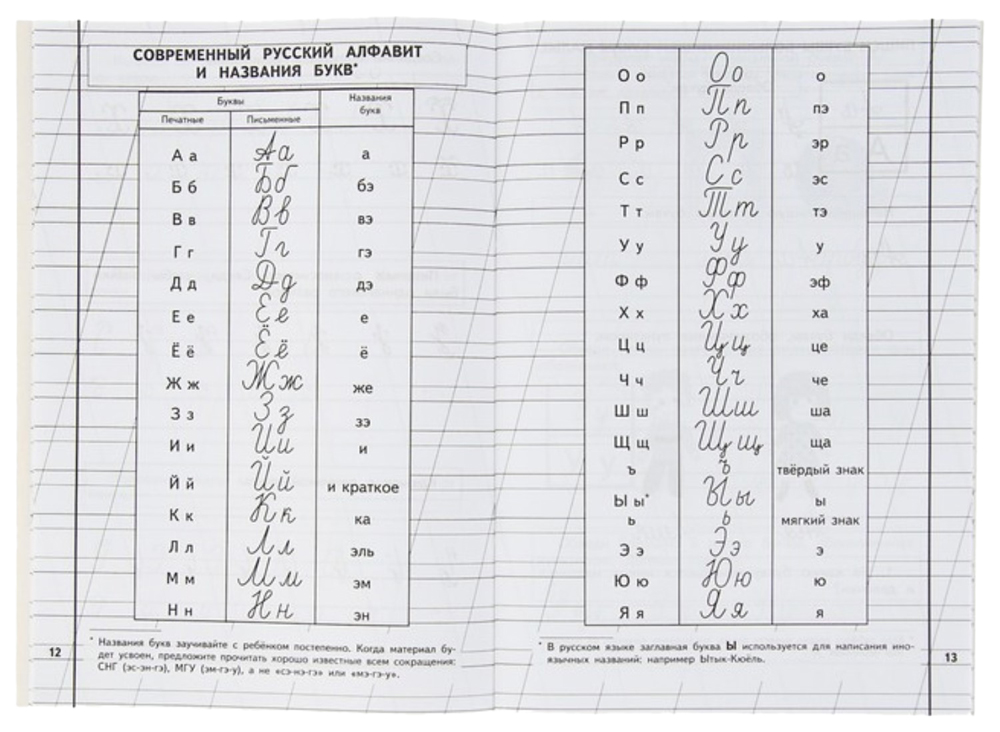 СОВРЕМЕННЫЙ РУССКИЙ АЛФАВИТ
И НАЗВАНИЯ БУКВ*
Буквы Названия букв
Печатные Письменные
А а Аа а
Б б Бб бэ
В в Вв вэ
Г г Гг гэ
Д д Дд дэ
Е е Ее е
Ё ё Ёё ё
Ж ж Жж же
З з Зз зэ
И и Ии и
Й й Йй и краткое
К к Кк ка
Л л Лл эль
М м Мм эм
Н н Нн эн
* Названия букв заучивайте с ребёнком постепенно. Когда материал бу-
дет усвоен, предложите прочитать хорошо известные всем сокращения:
СНГ (эс-эн-гэ), МГУ (эм-гэ-у), а не «сэ-нэ-гэ» или «мэ-гэ-у».
12
О о Оо о
П п Пп пэ
Р р Рр эр
С с Сс эс
Т т Тт тэ
У у Уу у
Ф ф Фф эф
Х х Хх ха
Ц ц Цц це
Ч ч Чч че
Ш ш Шш ша
Щ щ Щщ ща
ъ ъ твёрдый знак
Ы ы* Ыы ы
ь ь мягкий знак
Э э Ээ э
Ю ю Юю ю
Я я Яя я
* В русском языке заглавная буква Ы используется для написания ино-
язычных названий: например Ытык-Кюёль.
13